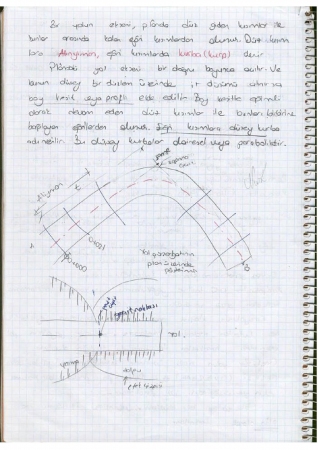 Bir yolun ekseni, planda düz giden kısımlar ile
bunlar arasında kalan eğri kısımlardan oluşur. Düz kısım
lara Aliynyman, eğri kısımlarada kurba (kurp) denir.
Plandaki yol ekseni bir doğru boyunca açılır. Ve
bunun düşey bir düzlem üzerinde iz düşümü alınırsa
boy kesit veya profil elde edilir. Boy kesitte eğimli
olarak devam eden düz kısımlar ile bunları birbirine
bağlayan eğrilerden oluşur. Eğri kısımlara düşey kurba
adı verilir. Bu düşey kurbalar dairesel veya paraboliktir.
Aliyman
0+000
0+020
Yol güzergahının
plan üzerinde
Yol
yarma
dolgu